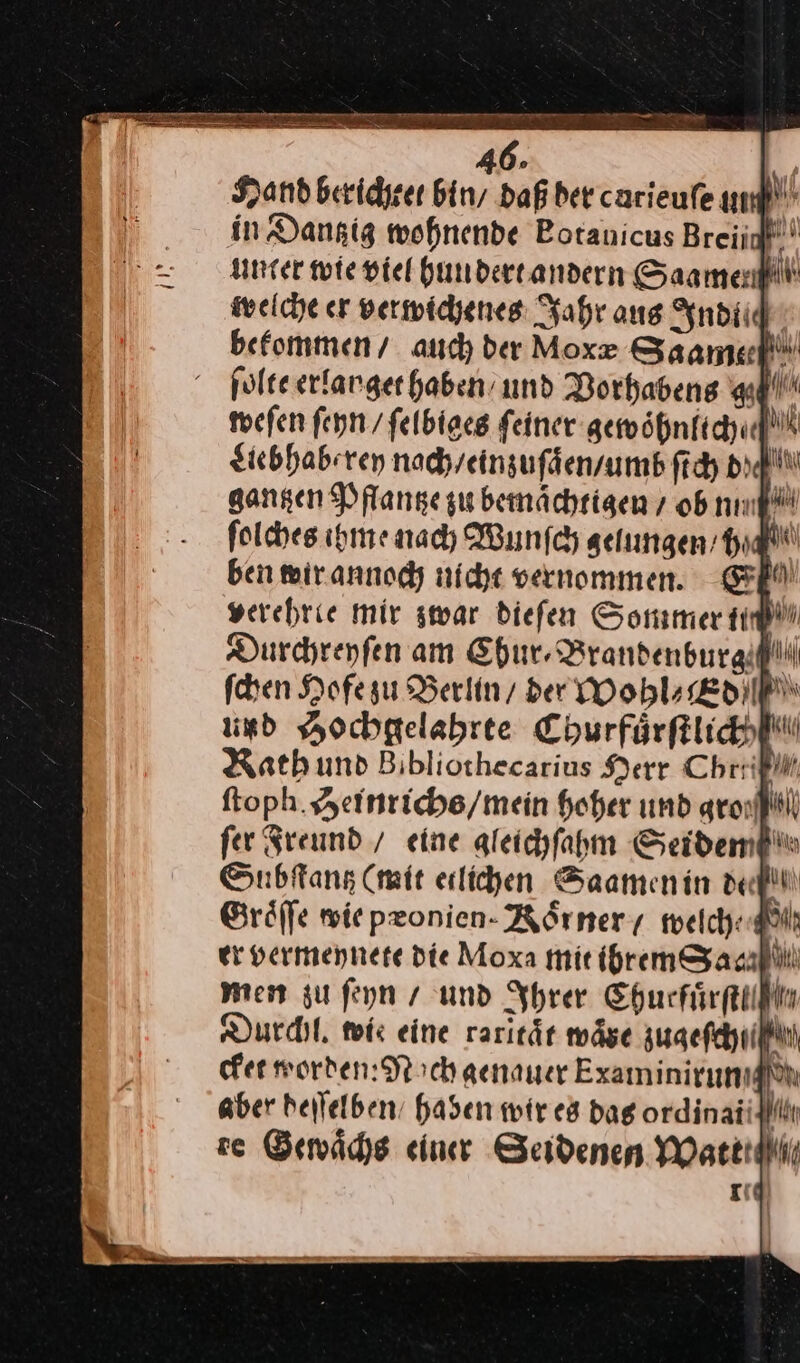 46.
Hand berichtet bin/ daß der curieuſe und
in Dantzig wohnende Botanicus Breiin
unter wie viel hundert andern Saamen
welche er verwichenes Jahr aus Indi
bekommen / auch der Moxæ Saame
ſolte erlanget haben/ und Vorhabens ge
weſen ſeyn / ſelbiges ſeiner gewoͤhnlich
Liebhaberey nach/einzuſaͤen/umb ſich d
gantzen Pflantze zu bemaͤchtigen / ob nu
ſolches ihme nach Wunſch gelungen/ h
ben wir annoch nicht vernommen. E
verehrte mir zwar dieſen Sommer i
Durchreyſen am Chur-Brandenburgi
ſchen Hofe zu Berlin / der Wohl-Ed
und Hochgelahrte Churfuͤrſtlich
Rath und Bibliothecarius Herr Chri
ſtoph. Heinrichs/mein hoher und gro
ſer Freund / eine gleichſahm Seiden
Subſtantz (mit etlichen Saamen in de
Groͤſſe wie pæonien-Koͤrner / welch
er vermeynete die Moxa mit ihrem Saa
men zu ſeyn / und Ihrer Churfuͤrſtl
Durchl. wie eine raritaͤt waͤre zugeſchi
cket worden: Nach genauer Examinirun
aber deſſelben/ haben wir es das ordinai
re Gewaͤchs einer Seidenen Watt